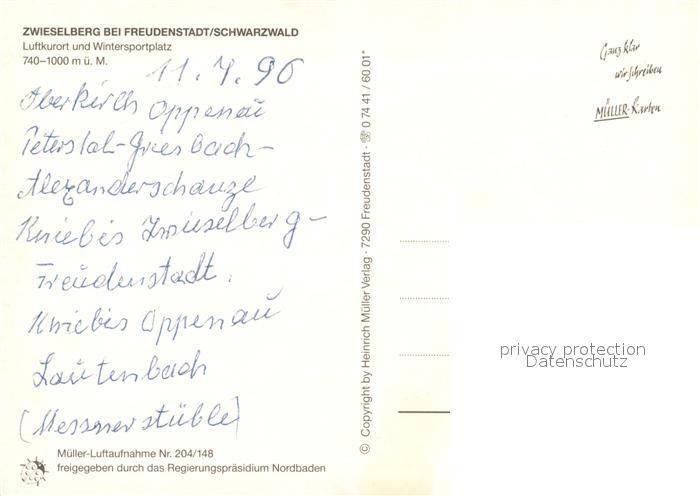 ZWIESELBERG BEI FREUDENSTADT/SCHWARZWALD
Luftkurort und Wintersportplatz
740–1000 m ü. M.
11. 4. 96
Oberkirch Oppenau
Peterstal-Griesbach-
Alexanderschanze
Kniebis Zwieselberg-
Freudenstadt.
Kniebis Oppenau
Lautenbach
(Messnerstüble)
Müller-Luftaufnahme Nr. 204/148
freigegeben durch das Regierungspräsidium Nordbaden
© Copyright by Heinrich Müller Verlag · 7290 Freudenstadt · ☏ 0 74 41 / 60 01*
Ganz klar
wir schreiben
MÜLLER-Karten
privacy protection
Datenschutz